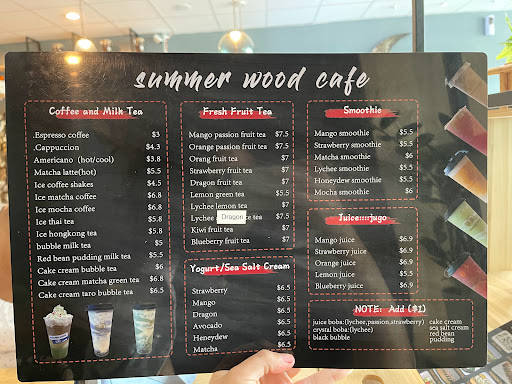 summer wood cafe
Coffee and Milk Tea
.Espresso coffee $3
.Cappuccion $4.3
Americano (hot/cool) $3.8
Matcha latte(hot) $5.5
Ice coffee shakes $4.5
Ice matcha coffee $6.8
Ice mocha coffee $6.8
Ice thai tea $5.8
Ice hongkong tea $5.8
bubble milk tea $5
Red bean pudding milk tea $5.5
Cake cream bubble tea $6
Cake cream matcha green tea $6.8
Cake cream taro bubble tea $6.5
Fresh Fruit Tea
Mango passion fruit tea $7.5
Orange passion fruit tea $7.5
Orang fruit tea $7
Strawberry fruit tea $7
Dragon fruit tea $7
Lemon green tea $5.5
Lychee lemon tea $7
Lychee Dragon tea $7.5
Kiwi fruit tea $7
Blueberry fruit tea $7
Yogurt/Sea Salt Cream
Strawberry $6.5
Mango $6.5
Dragon $6.5
Avocado $6.5
Heneydew $6.5
Matcha $6.5
Smoothie
Mango smoothie $5.5
Strawberry smoothie $5.5
Matcha smoothie $6
Lychee smoothie $5.5
Honeydew smoothie $5.5
Mocha smoothie $6
Juice:::jugo
Mango juice $6.9
Strawberry juice $6.9
Orange juice $6.9
Lemon juice $5.5
Blueberry juice $6.9
NOTE: Add ($1)
juice boba:(lychee,passion,strawberry) cake cream
crystal boba:(lychee) sea salt cream
black bubble red bean
pudding